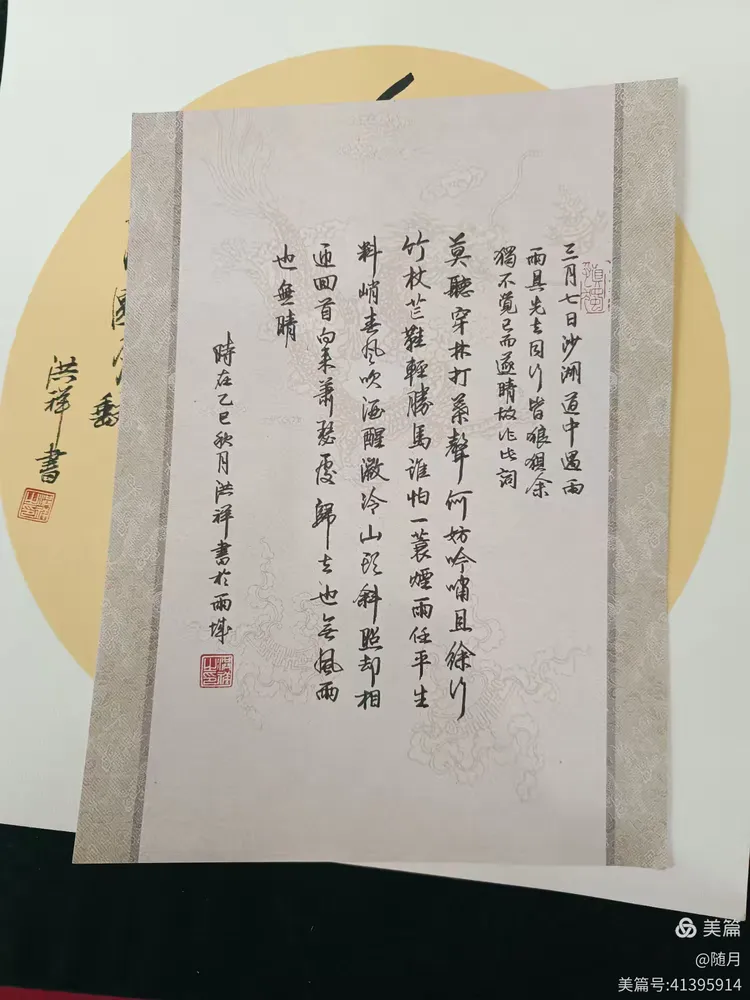 三月七日沙湖道中遇雨
雨具先去同行皆狼狽余
獨不覺已而遂晴故作此詞
莫聽穿林打葉聲何妨吟嘯且徐行
竹杖芒鞋輕勝馬誰怕一蓑煙雨任平生
料峭春风吹酒醒微冷山頭斜照却相
迎回首向来蕭瑟處歸去也无風雨
也無晴
時在乙巳秋月洪祥書於雨城
洪祥書
美篇
@随月
美篇号:41395914